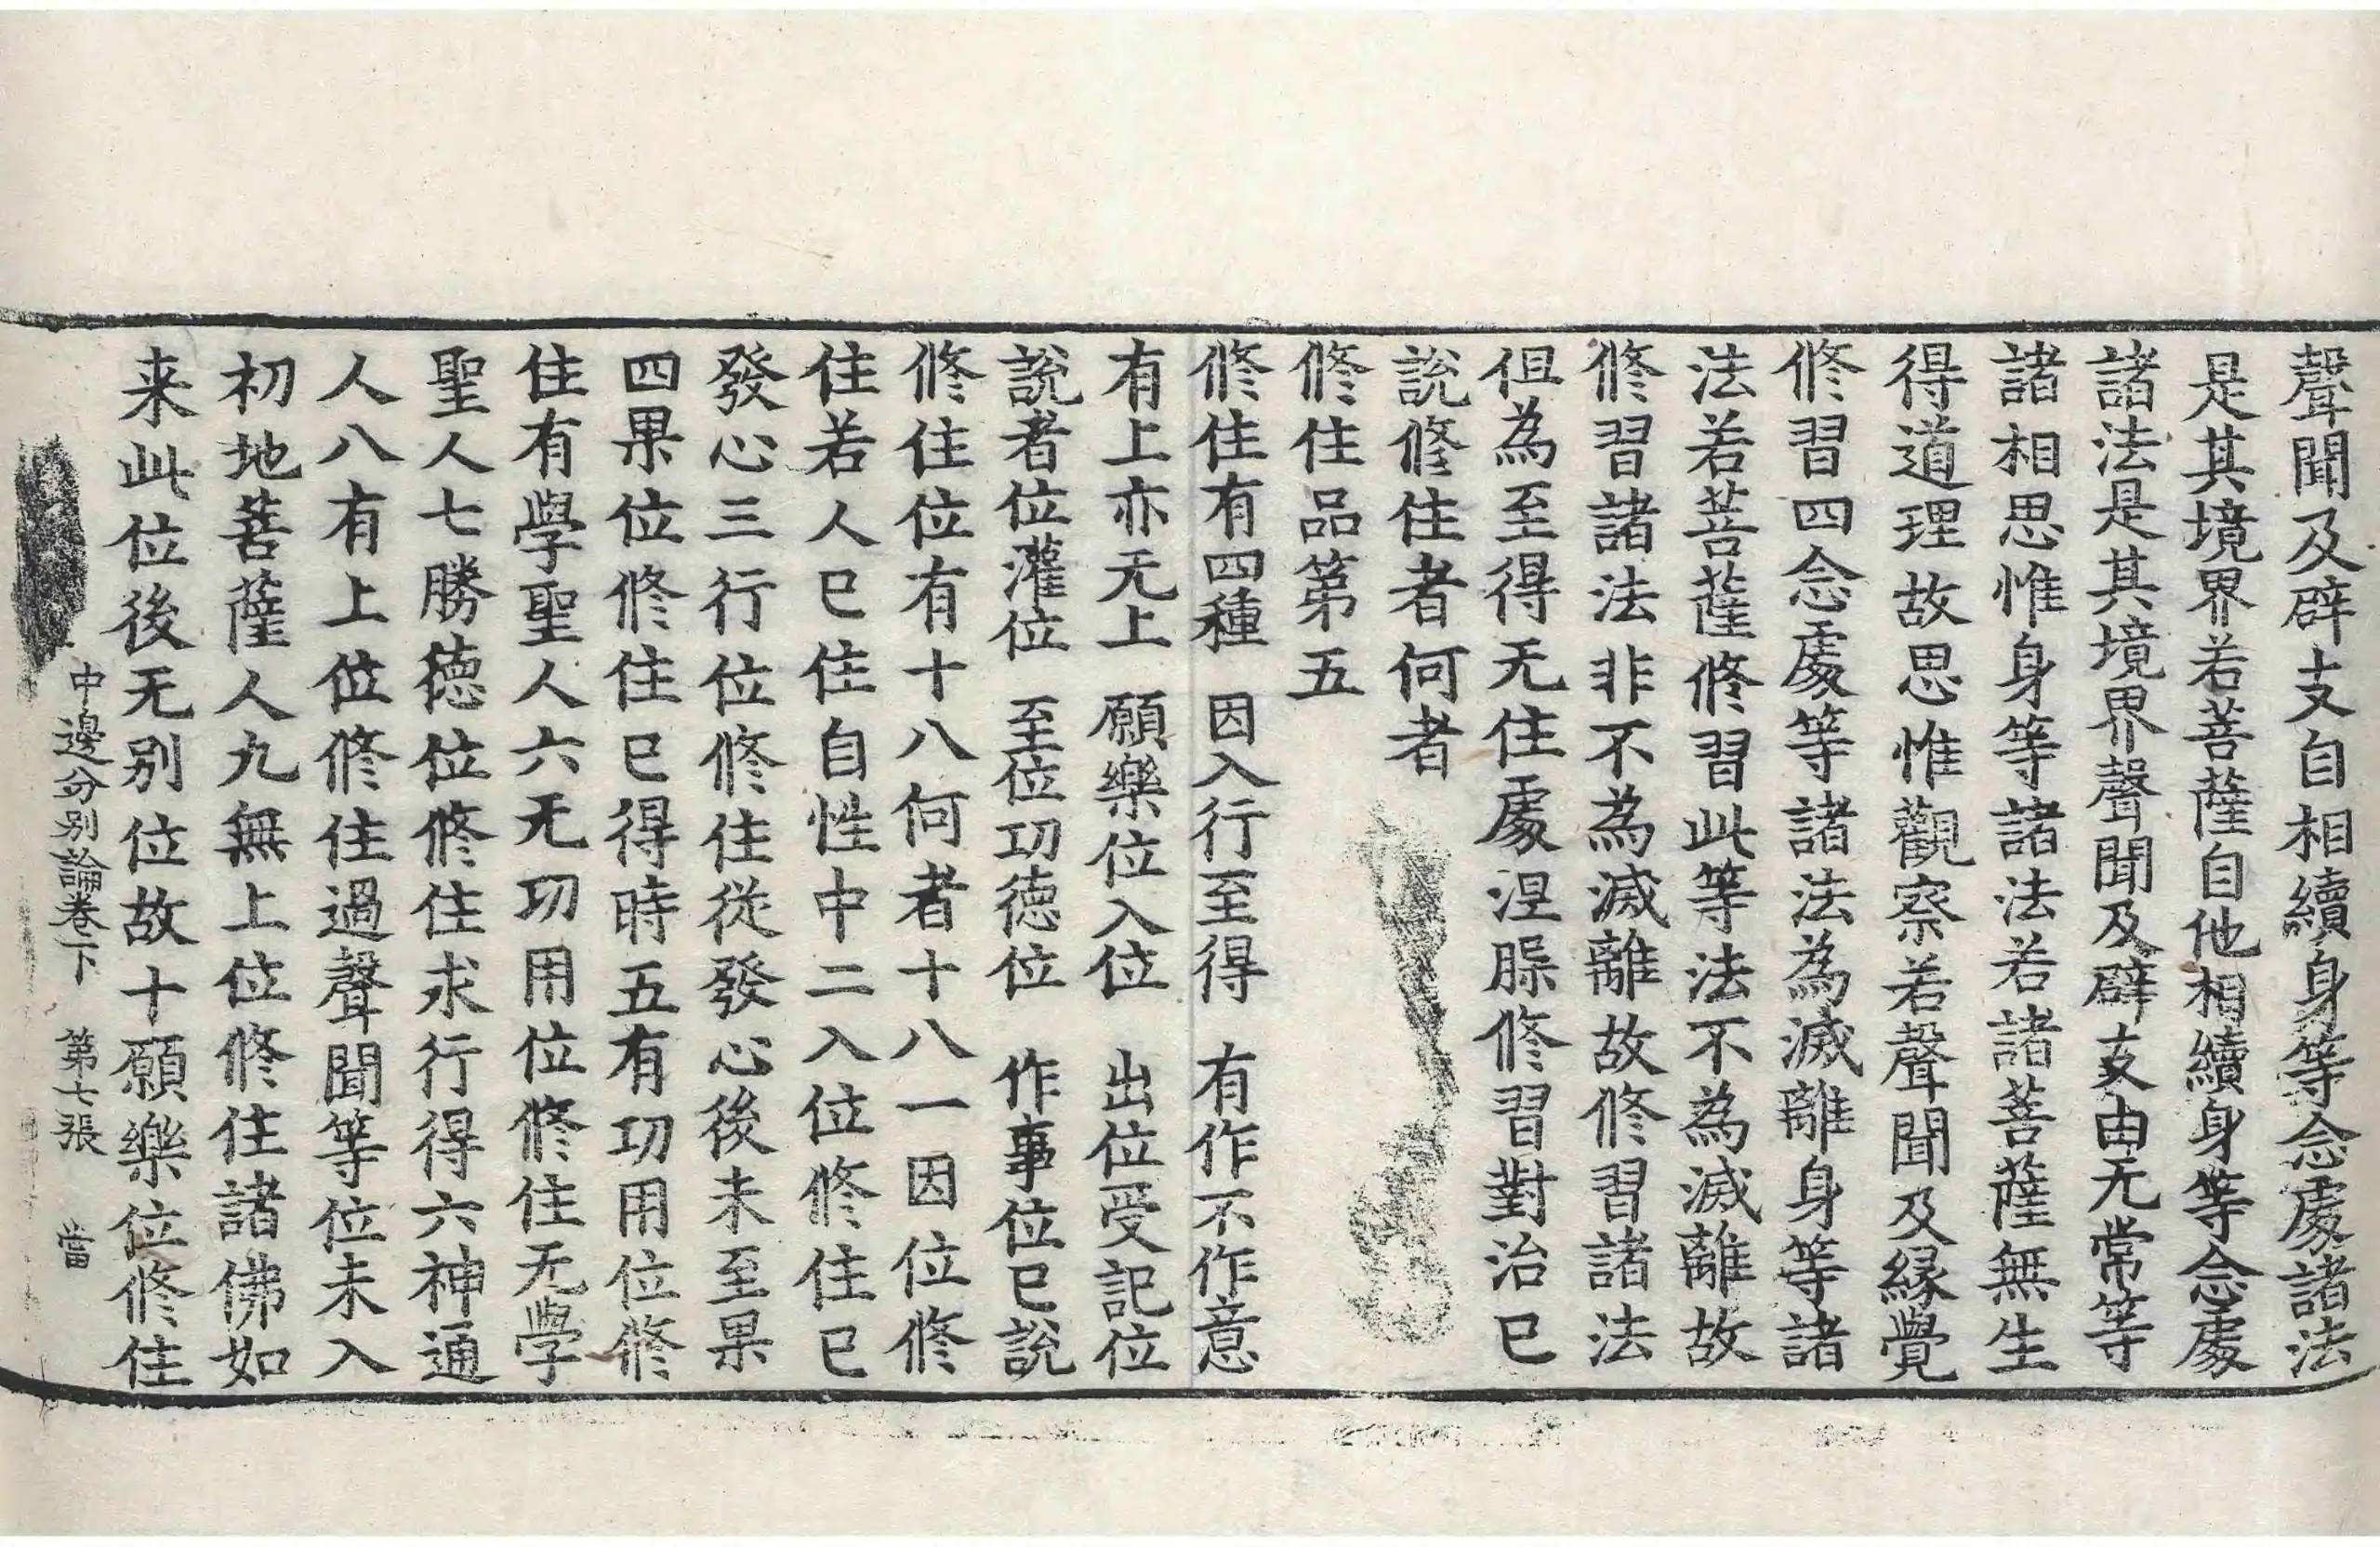 聲聞及辟支自相續身等念處諸法
是其境界若菩薩自他相續身等念處
諸法是其境界聲聞及辟支由无常等
諸相思惟身等諸法若諸菩薩無生
得道理故思惟觀察若聲聞及緣覺
修習四念處等諸法為滅離身等諸
法若菩薩修習此等法不為滅離故
修習諸法非不為滅離故修習諸法
但為至得无住處涅槃修習對治已
說修住者何者
修住品第五
修住有四種　因入行至得　有作不作意
有上亦无上　願樂位入位　出位受記位
說者位灌位　至位功德位　作事位已說
修住位有十八何者十八一因位修
住若人已住自性中二入位修住已
發心三行位修住從發心後未至果
四果位修住已得時五有功用位修
住有學聖人六无功用位修住无學
聖人七勝德位修住求行得六神通
人八有上位修住過聲聞等位未入
初地菩薩人九無上位修住諸佛如
来此位後无別位故十願樂位修住
中邊分別論卷下　第七張　當